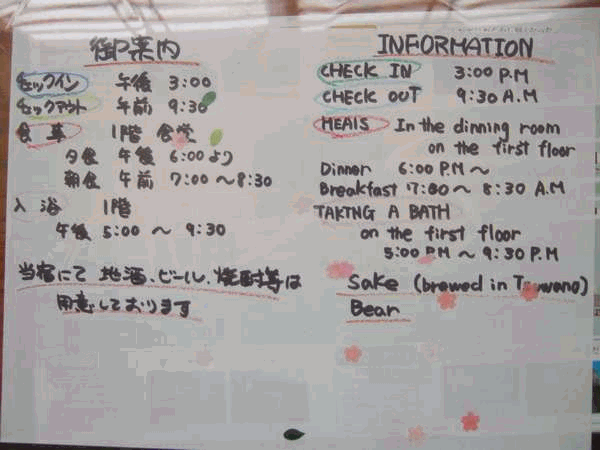 御案内
チェックイン 午後 3:00
チェックアウト 午前 9:30
食事 1階 食堂
夕食 午後 6:00より
朝食 午前 7:00〜8:30
入浴 1階
午後 5:00 〜 9:30
当宿にて 地酒、ビール、焼酎等は
用意しております
INFORMATION
CHECK IN 3:00 P.M
CHECK OUT 9:30 A.M
MEALS In the dinning room
on the first floor
Dinner 6:00 P.M〜
Breakfast 7:00〜 8:30 A.M
TAKING A BATH
on the first floor
5:00 PM 〜 9:30 P.M
Sake (brewed in Tsuwano)
Bear